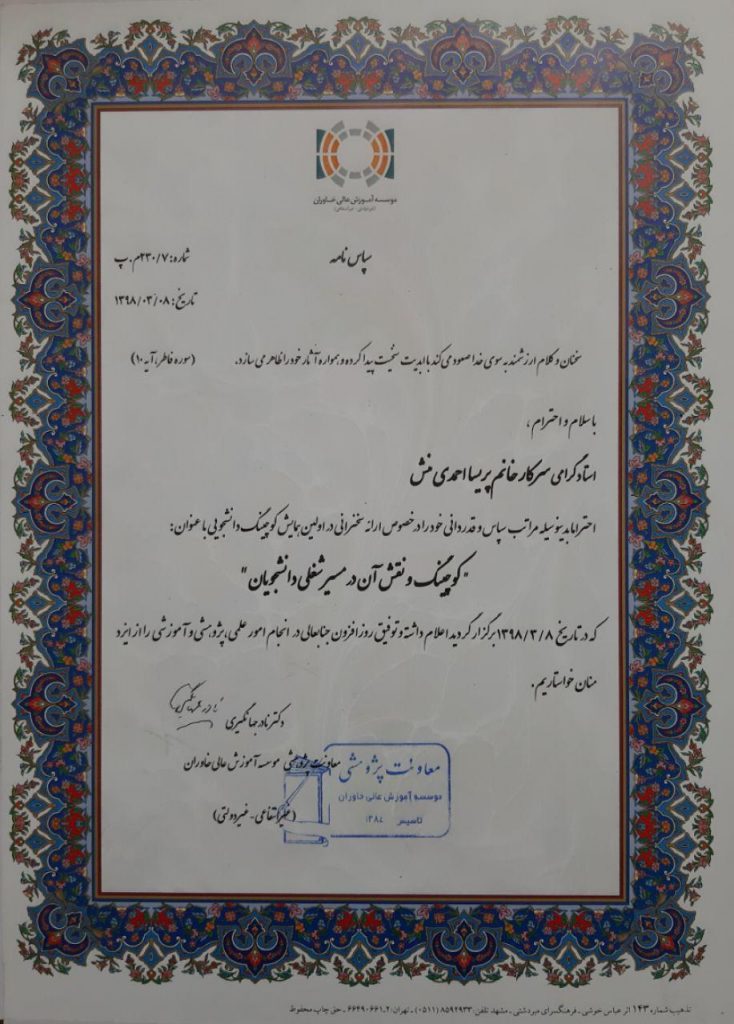 موسسه آموزش عالی خاوران
(غیردولتی - غیرانتفاعی)
سپاس نامه
شماره: ۲۳۰/۷م.پ
تاریخ: ۱۳۹۸/۰۳/۰۸
سخنان و کلام ارزشمند به سوی خدا صعود می کند با ابدیت سنخیت پیدا کرده و همواره آثار خود را ظاهر می سازد. (سوره فاطر، آیه ۱۰)
با سلام و احترام ،
استاد گرامی سرکار خانم پریسا احمدی منش
احتراما بدینوسیله مراتب سپاس و قدردانی خود را در خصوص ارائه سخنرانی در اولین همایش کوچینگ دانشجویی با عنوان:
"کوچینگ و نقش آن در مسیر شغلی دانشجویان"
که در تاریخ ۱۳۹۸/۳/۸ برگزار گردید اعلام داشته و توفیق روز افزون جنابعالی در انجام امور علمی، پژوهشی و آموزشی را از ایزد
منان خواستاریم.
دکتر نادر جهانگیری
معاونت پژوهشی موسسه آموزش عالی خاوران
(غیرانتفاعی - غیردولتی)
معاونت پژوهشی
موسسه آموزش عالی خاوران
تاسیس ۱۳۸۴
تذهیب شماره ۱۴۳ اثر عباس خوشی - فرهنگسرای میردشتی - مشهد تلفن: ۸۵۹۲۹۳۳ (۰۵۱۱) - تهران: ۲-۶۶۴۹۰۶۶۱ - حق چاپ محفوظ